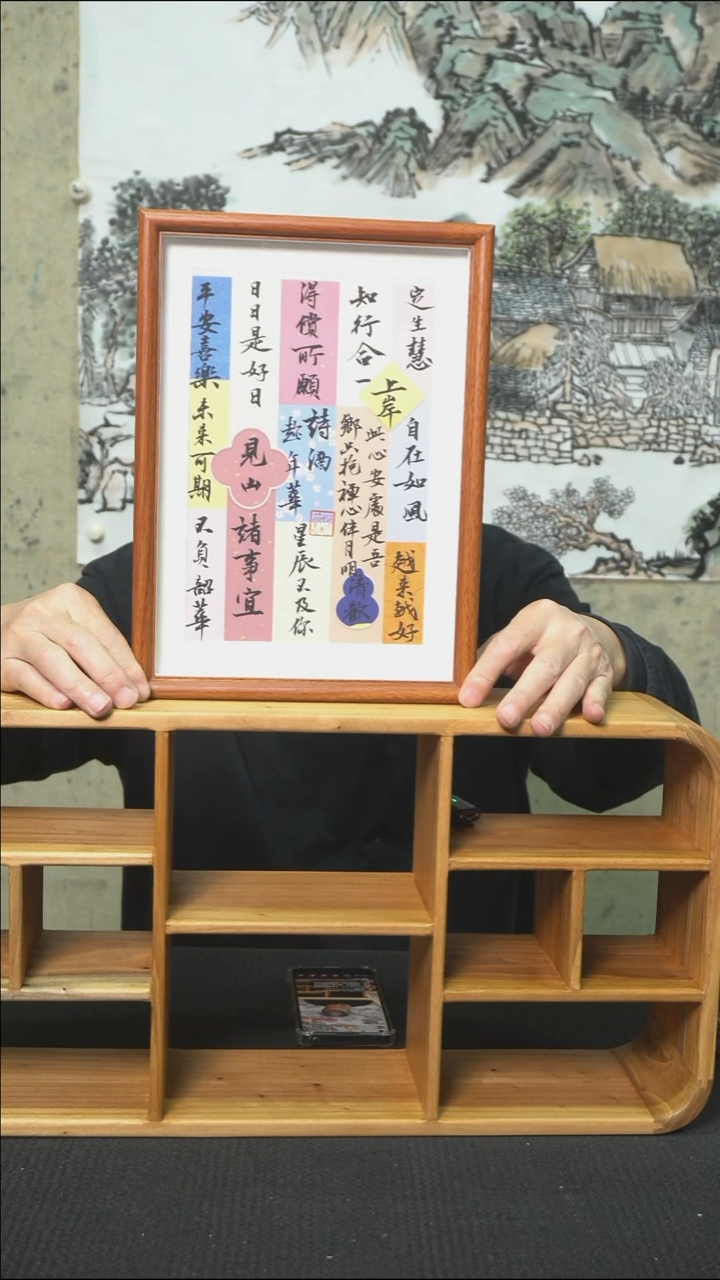 定生慧
自在如风
越来越好
知行合一
上岸
此心安处是吾
鄉只抱禅心伴月明
清歡
得償所願
詩酒
趁年華
星辰不及你
日日是好日
見山
諸事宜
平安喜樂
未来可期
不負韶華